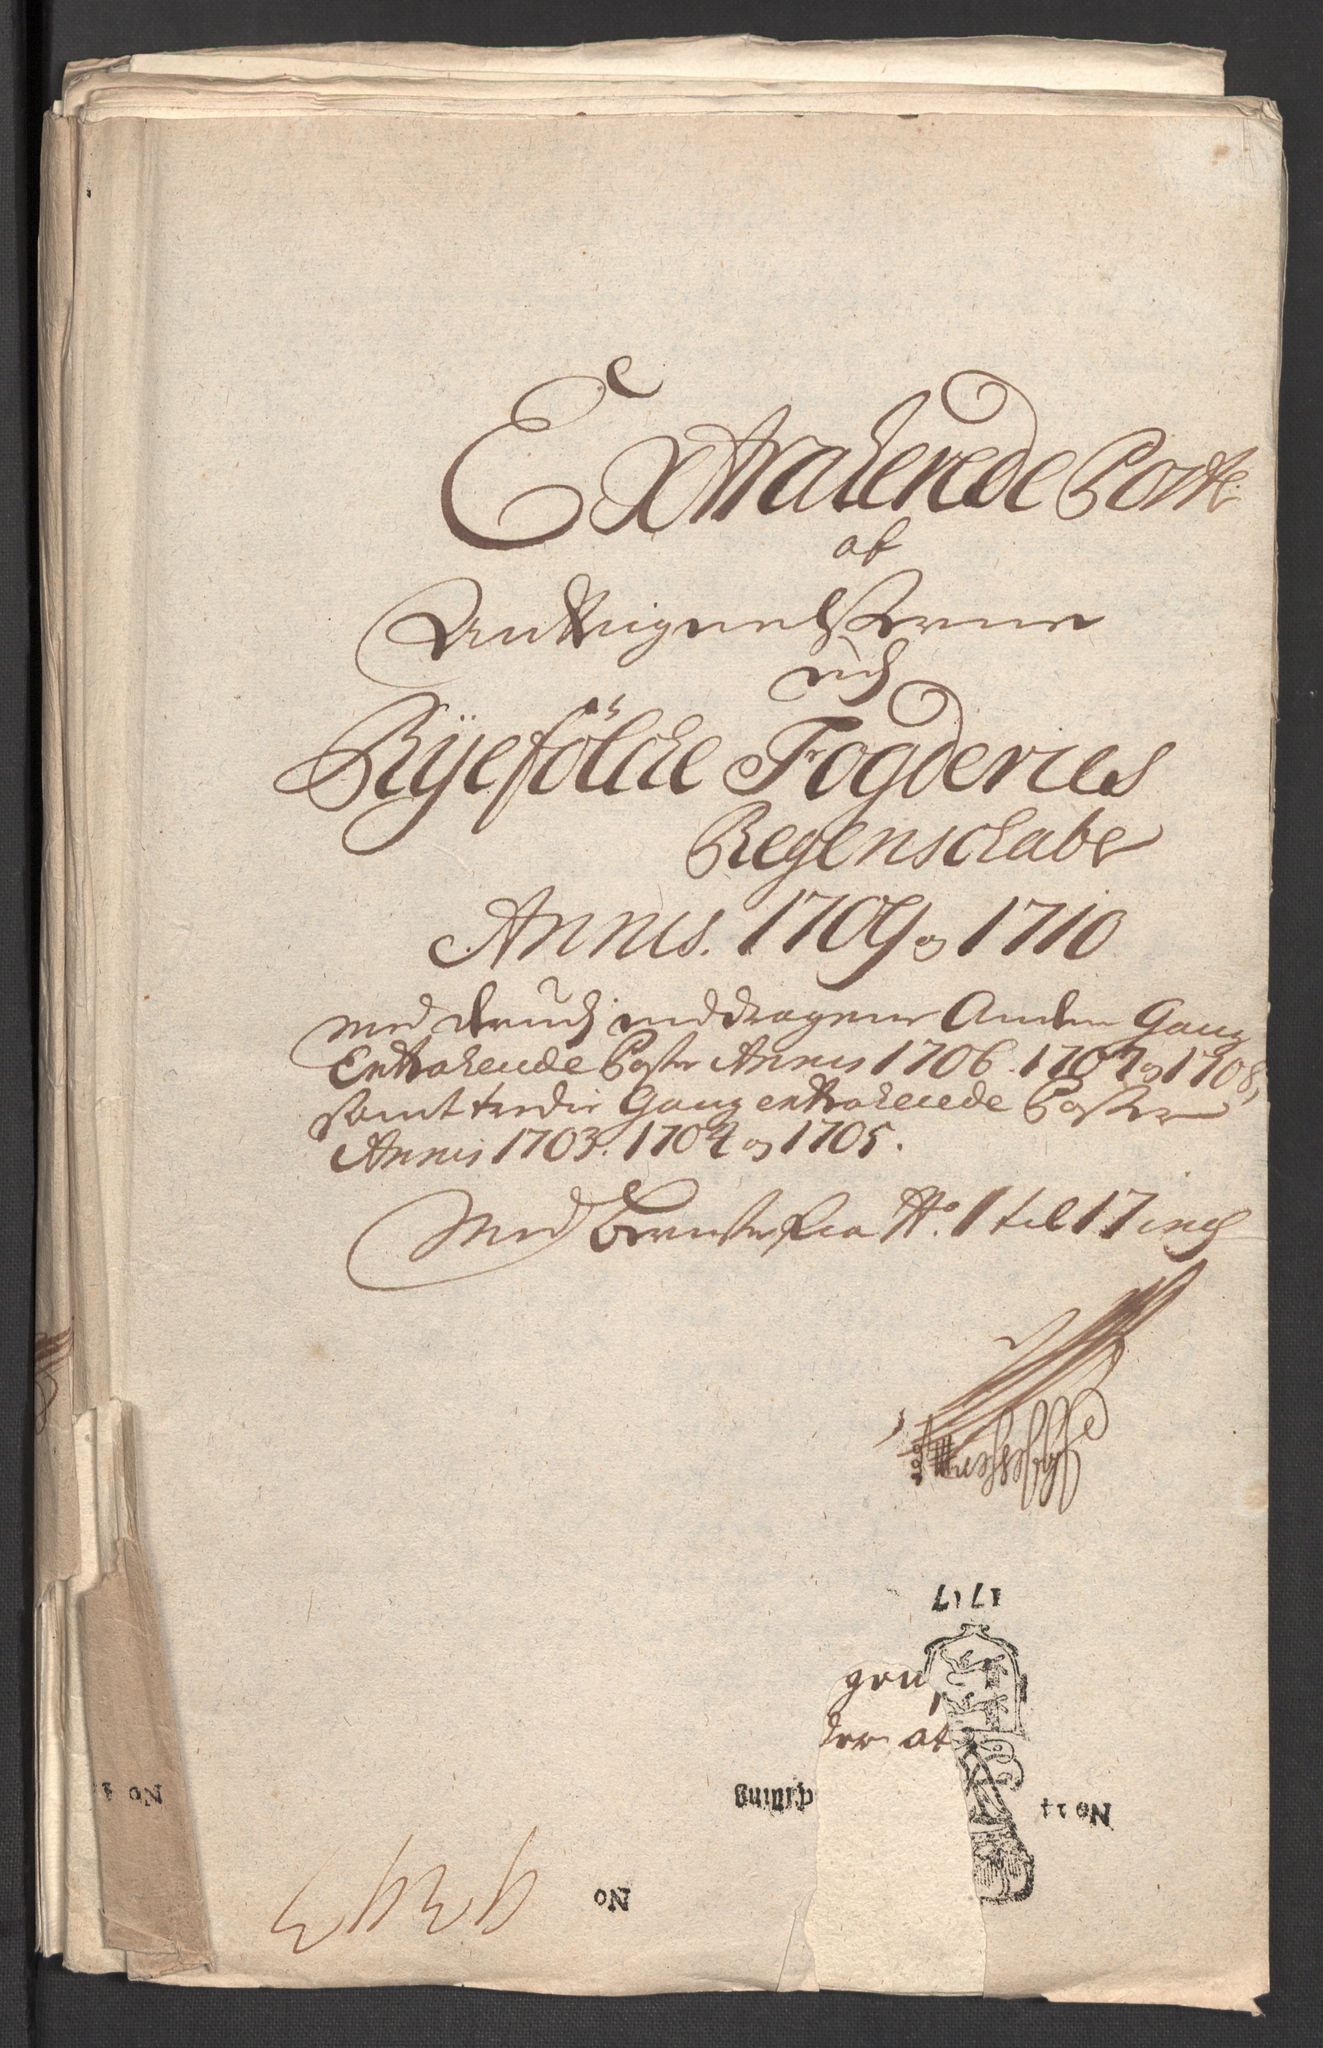 Extraherede Poster
af
Andtvignelserne
ved
Ryefölcke Fogderies
Regenschaber
Annis. 1709 og 1710
med derudj inddragne Anden Gang
Extraherede Poster Annis 1706. 1707 og 1708,
samt tredie Gang extraherede Poster
Annis 1703. 1704 og 1705.
Med Beviiser fra No. 1 til 17 incl
1717
der at
No 11
No
4343